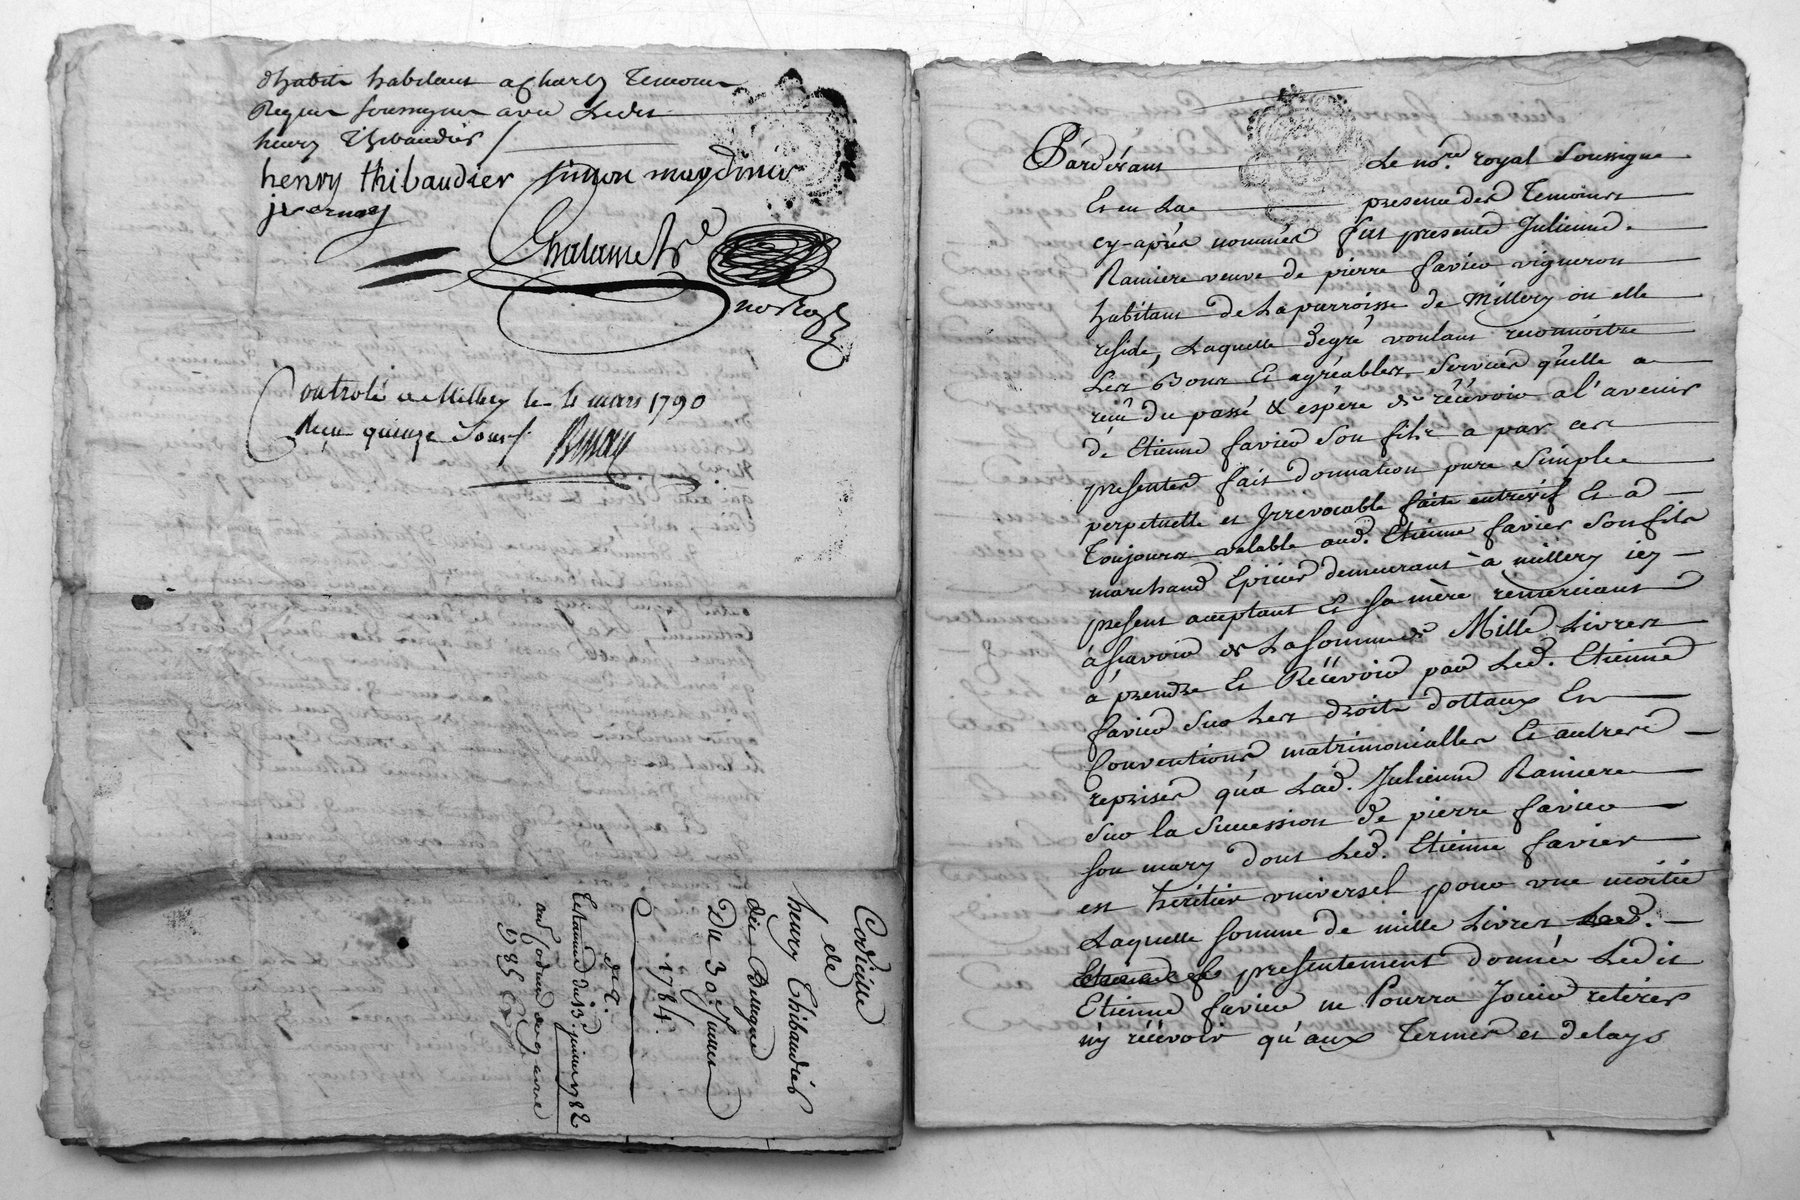 d'habits habitant a Charly Temoins
Requis soussignés avec Ledit
henry Thibaudier /
henry thibaudier simon
jvernay
Chalamel Nre
notaire
Controlé a Millery le 4 mars 1790
Reçu quinze Sous
Codicille
de
henry Thibaudier
du 30e.
1784.
Testament du 13e. 1782
1785
Pardevant Le no.re royal Soussigné
Et en La presence des Temoins
cy-après nommés fut presente Julienne
Raniere veuve de pierre favier vigneron
habitant de La parroisse de Millery ou elle
reside, Laquelle degré voulant reconnoitre
Les Bons Et agréables Services qu'elle a
reçû du passé & espère de récevoir a l'avenir
de Etienne favier Son fils a par ces
presentes fait donnation pure Simple
perpetuelle et Irrevocable faite entrevif Et a
Toujours valable aud. Etienne favier Son fils
marchand Epicier demeurant à millery icy
present acceptant Et sa mère remerciant
à sçavoir de La somme de Mille Livres
a prendre Et Récevoir par Led. Etienne
favier Sur Les droits dottaux Et
Conventions matrimonialles Et autres
reprises qu'a Lad. Julienne Raniere
Sur la Succession de pierre favier
son mary dont Led. Etienne favier
est héritier universel pour une moitié
Laquelle somme de mille Livres
presentement donnée Ledit
Etienne favier ne Pourra Jouir retirer
ny récévoir qu'aux Termes et delays